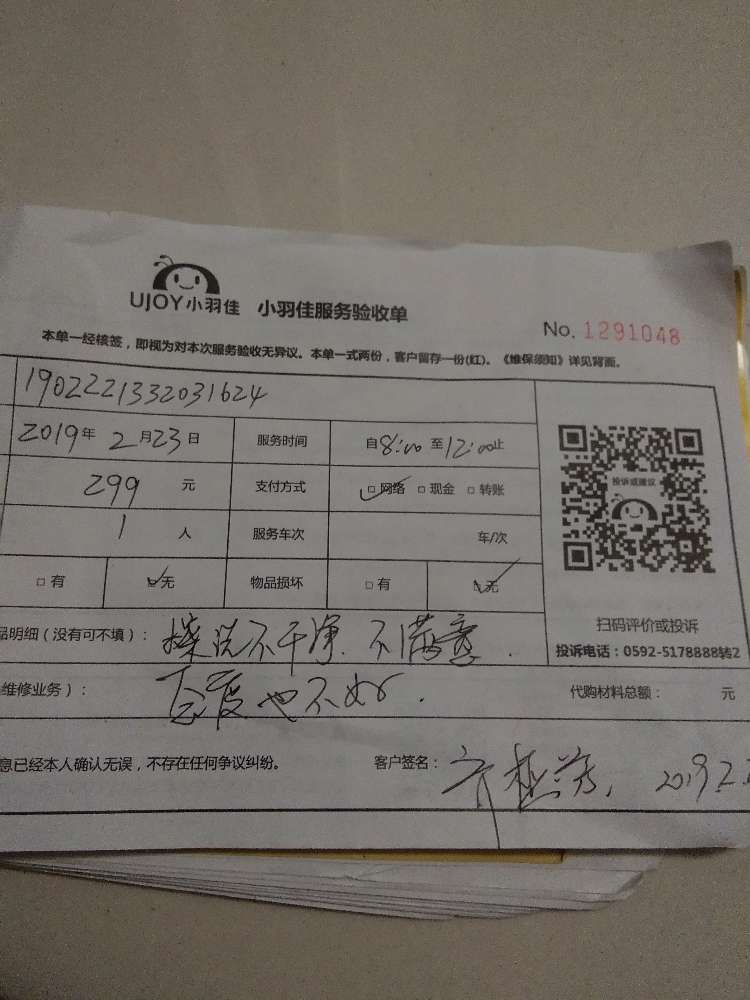 UJOY小羽佳 小羽佳服务验收单
No. 1291048
本单一经核签，即视为对本次服务验收无异议。本单一式两份，客户留存一份(红)。《维保须知》详见背面。
1902221332031624
2019年 2月23日 服务时间 自8:00至12:00止
299 元 支付方式 □网络 □现金 □转账
投诉或建议
1 人 服务车次 车/次
□有 □无 物品损坏 □有 □无
扫码评价或投诉
品明细（没有可不填）： 擦洗不干净. 不满意.
投诉电话：0592-5178888转2
维修业务）： 态度也不好. 代购材料总额： 元
息已经本人确认无误，不存在任何争议纠纷。 客户签名： 2019.2.2